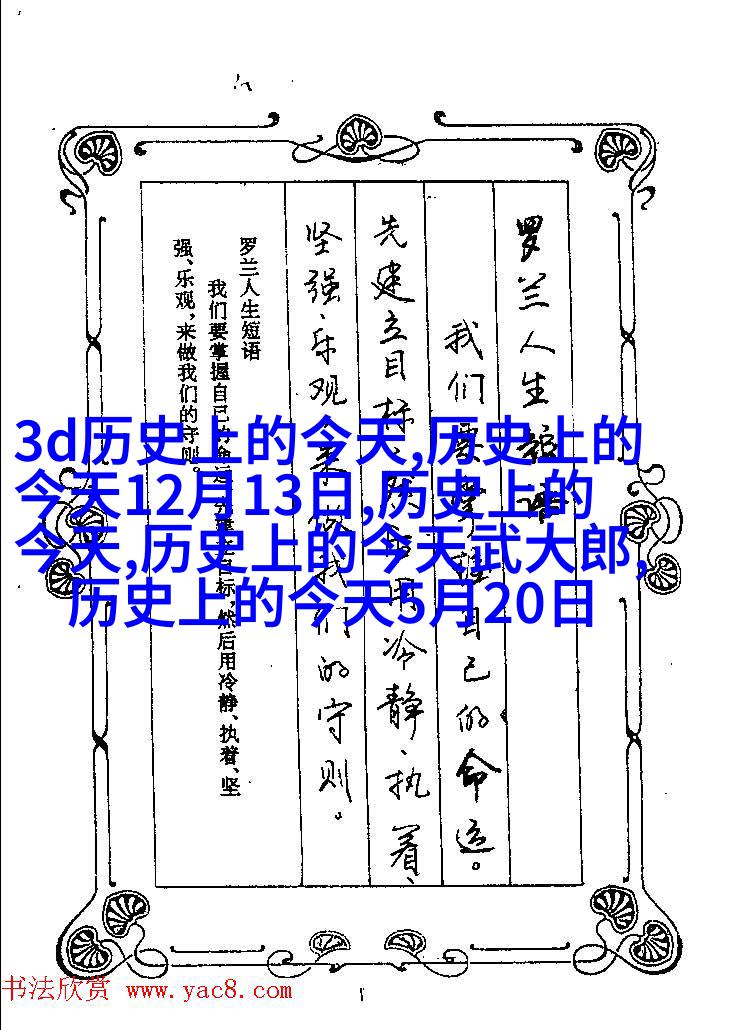 罗兰人生短语
我们要掌握自己的命运。
先建立目标,然后用冷静、执着、
坚强、乐观,来做我们的守则。
罗兰人生短语
我们要掌握自己的命运,先建立目标,然后用冷静、执着、坚
强、乐观,来做我们的守则。
3d历史上的今天,历史上的
今天12月13日,历史上的
今天,历史上的今天武大郎,
历史上的今天5月20日
书法欣赏 www.yac8.com
1